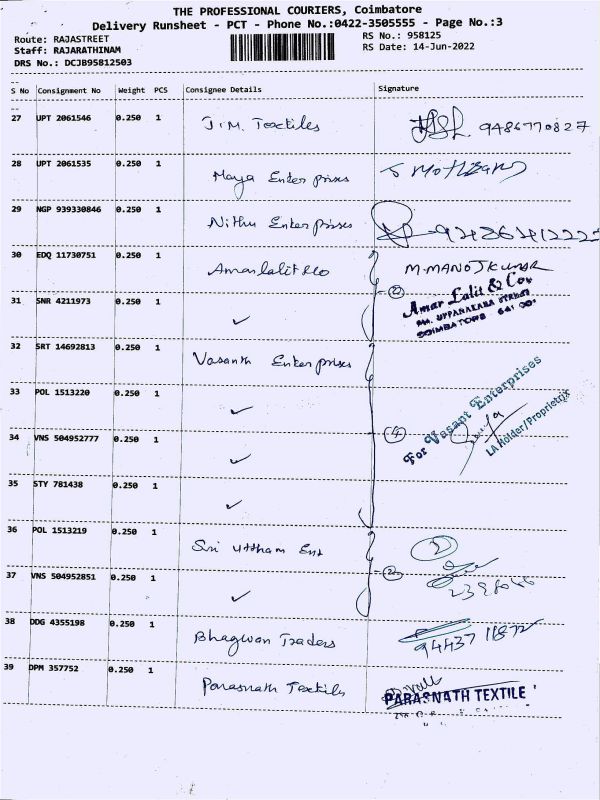 THE PROFESSIONAL COURIERS, Coimbatore
Delivery Runsheet - PCT - Phone No.:0422-3505555 - Page No.:3
Route: RAJASTREET RS No.: 958125
Staff: RAJARATHINAM RS Date: 14-Jun-2022
DRS No.: DCJB95812503
S No Consignment No Weight PCS Consignee Details Signature
27 UPT 2061546 0.250 1 J.M. Textiles 9486770827
28 UPT 2061535 0.250 1 Maya Enterprises
29 NGP 939330846 0.250 1 Nithu Enterprises
30 EDQ 11730751 0.250 1 Amarlalit &co M.MANOJKumar
2 Amar Lalit & Co
31 SNR 4211973 0.250 1 ✓ COIMBATORE 641 001
32 SRT 14692813 0.250 1 Vasanth Enterprises
33 POL 1513220 0.250 1 ✓ For Vasant Enterprises
34 VNS 504952777 0.250 1 ✓ 4 LA Holder/Proprietrix
35 STY 781438 0.250 1 ✓
36 POL 1513219 0.250 1 Sri Uttham Ent 2
37 VNS 504952851 0.250 1 ✓ 2
38 DDG 4355198 0.250 1 Bhagwan Traders 94437 11872
39 DPM 357752 0.250 1 Parasnath Textiles PARASNATH TEXTILE